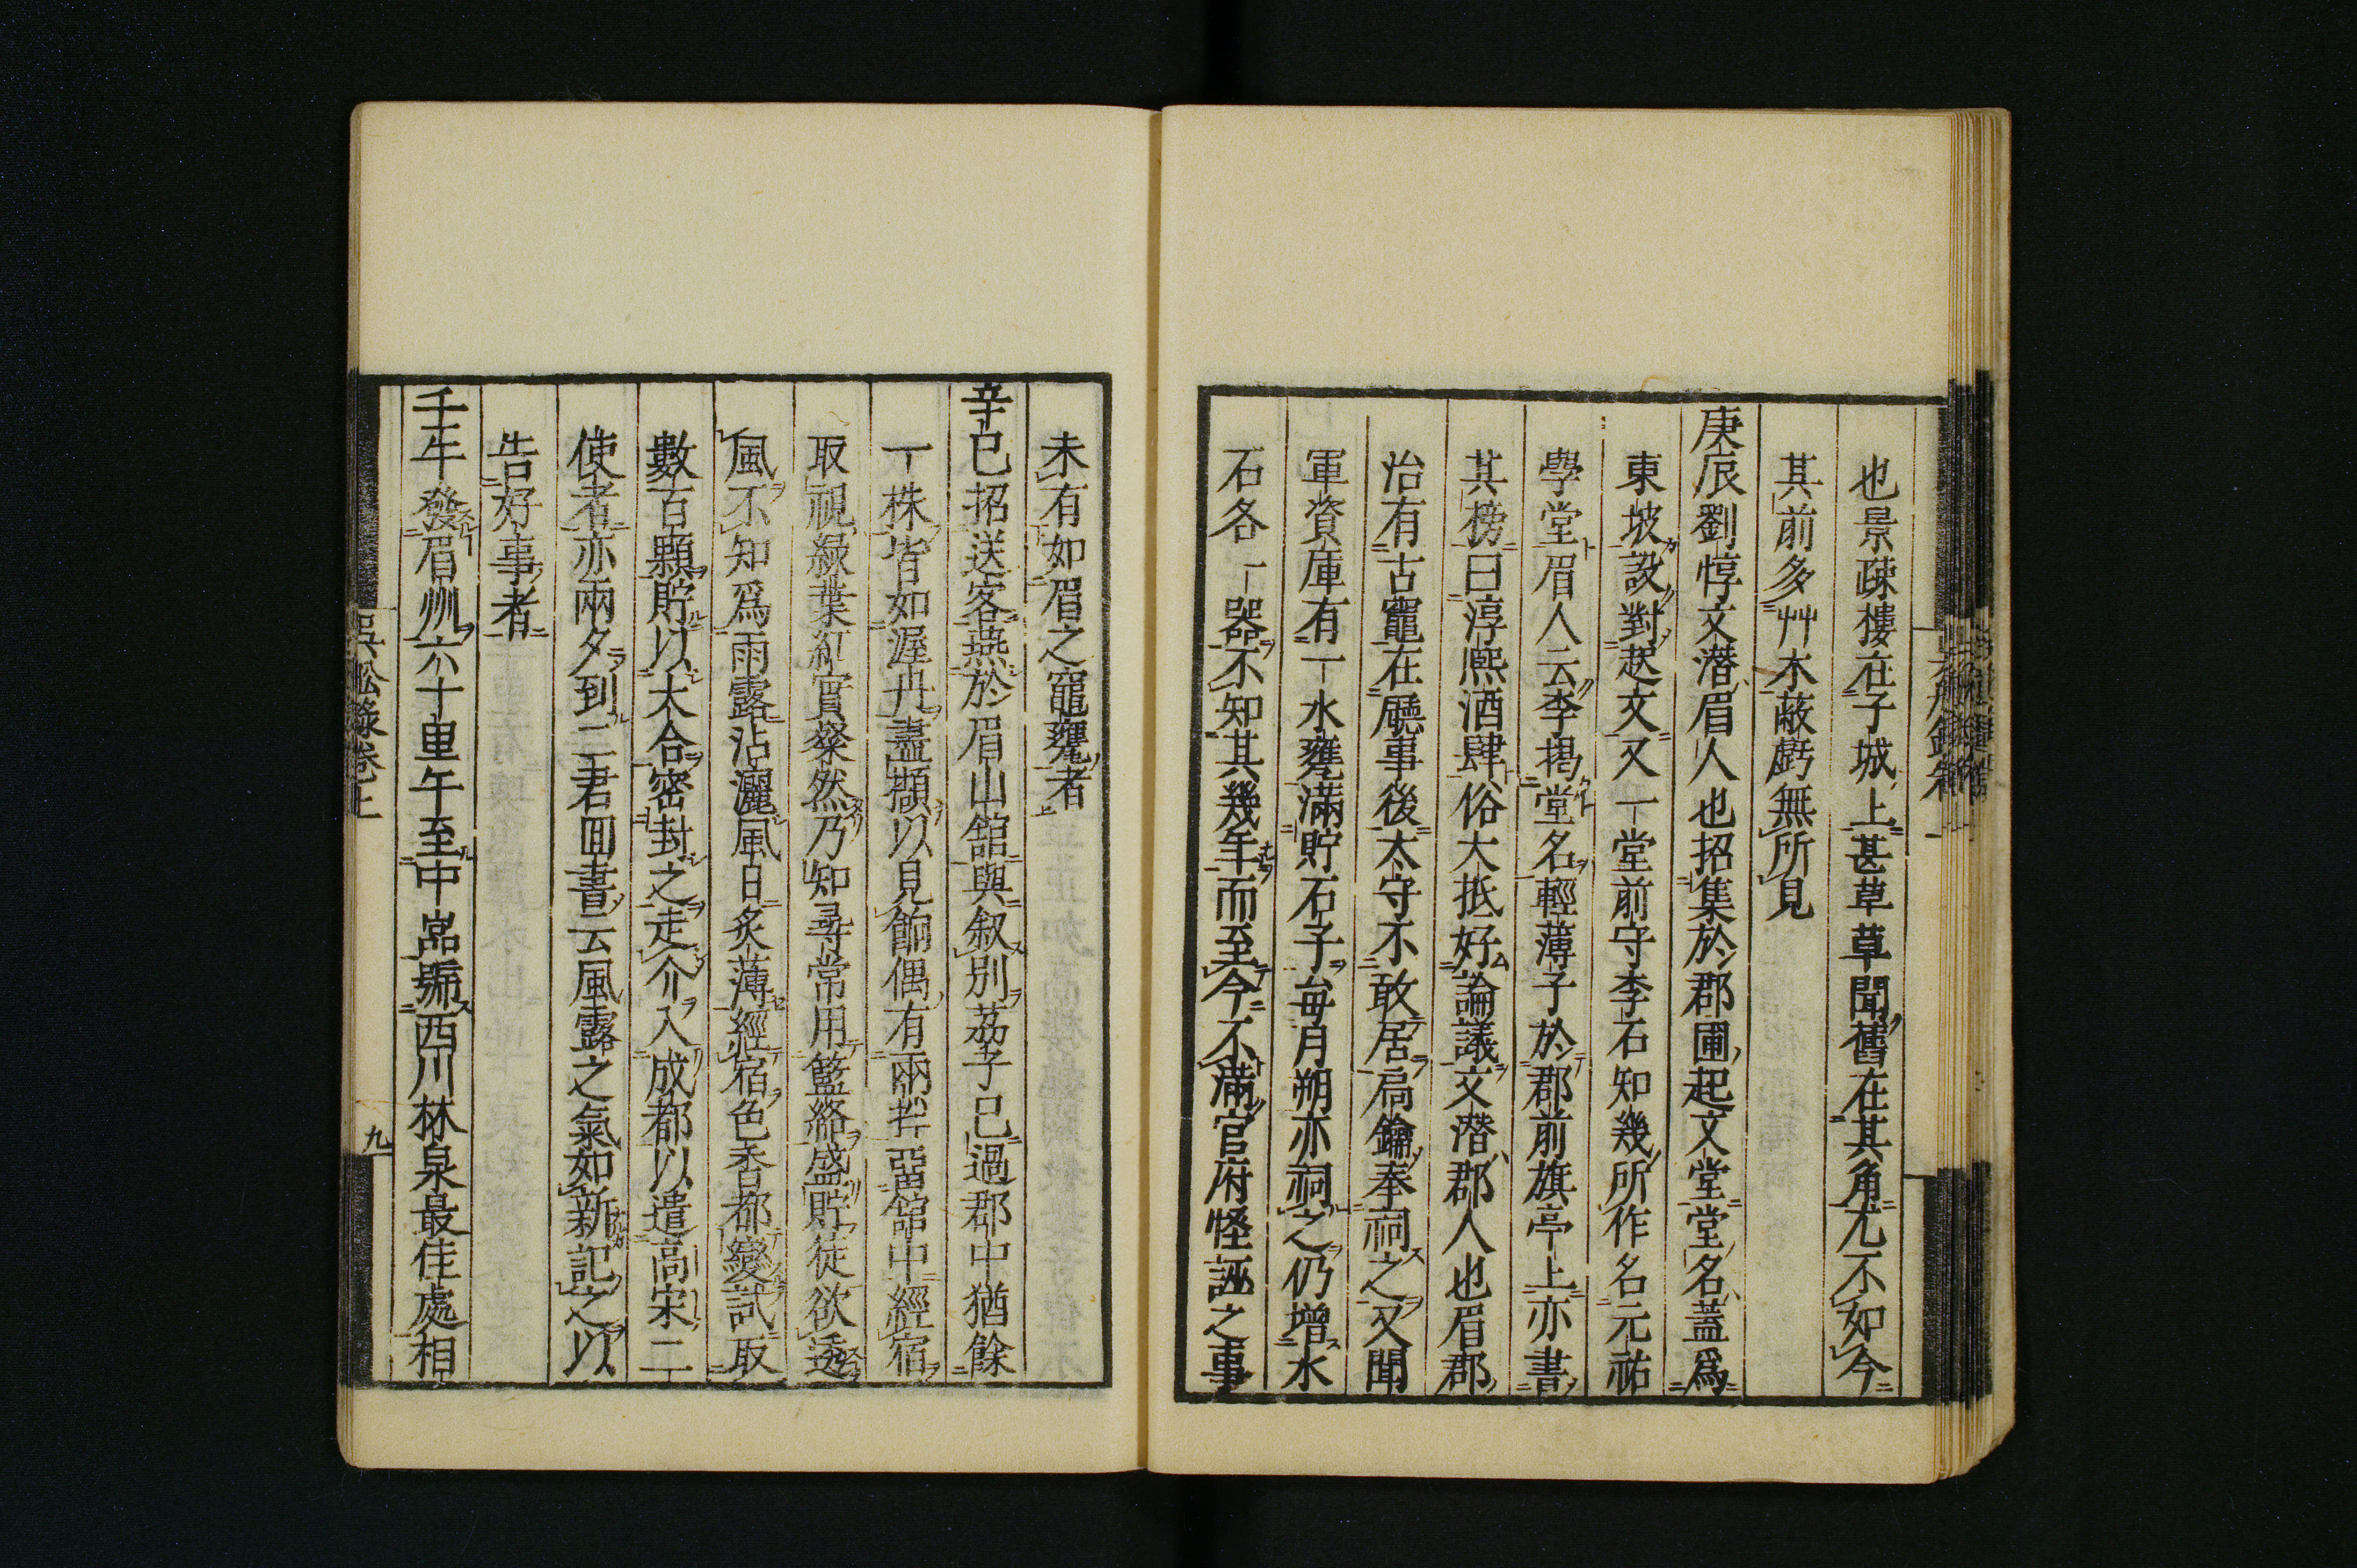 也景疎樓在子城上甚草草聞舊在其角尤不如今
其前多艸木蔽虧無所見
庚辰劉惇文潛眉人也招集於郡圃起文堂堂名蓋爲
東坡設對起文又一堂前守李石知幾所作名元祐
學堂眉人云李揭堂名輕薄子於郡前旗亭上亦書
其榜曰淳熈酒肆俗大抵好論議文潛郡人也眉郡
治有古竈在廳事後太守不敢居扃鑰奉祠之又聞
軍資庫有一水甕滿貯石子每月朔亦祠之仍增水
石各一器不知其幾年而至今不滿官府怪誣之事
未有如眉之竈甕者
辛巳招送客燕於眉山舘與叙別荔子已過郡中猶餘
一株皆如渥丹盡擷以見餉偶有兩𥫱畱舘中經宿
取視綠葉紅實粲然乃知尋常用籃絡盛貯徒欲透
風不知爲雨露沾灑風日炙薄經宿色香都變試取
數百顆貯以大合密封之走介入成都以遣高宋二
使者亦兩夕到二君回書云風露之氣如新記之以
告好事者
壬午發眉州六十里午至中嵓號西川林泉最佳處相
吳船錄卷上
九